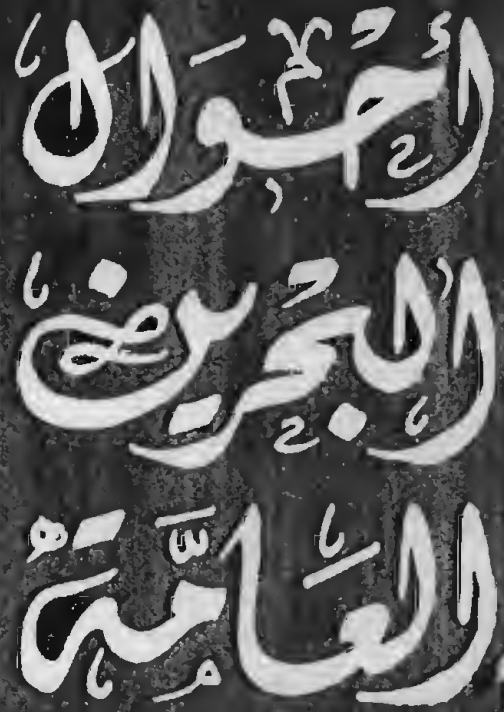 أحوال
البحرين
العامّة